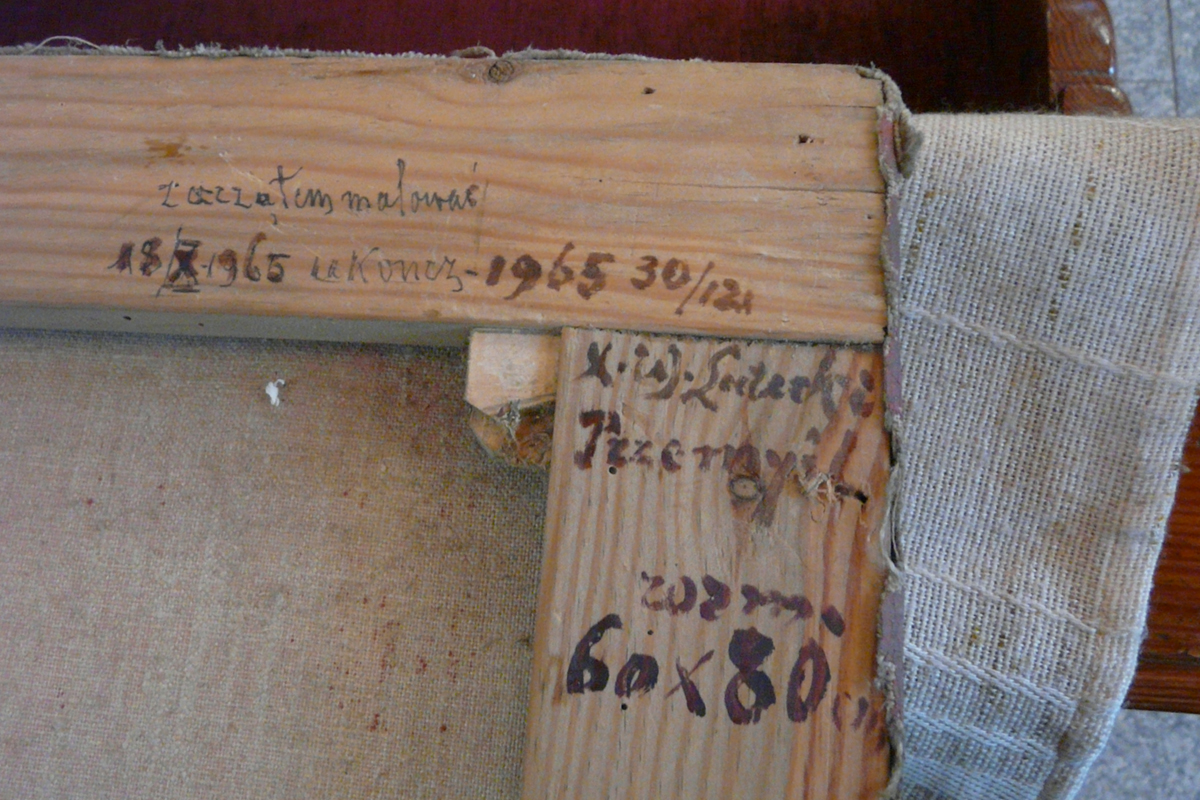 zacząłem malować
18/X 1965 ukończ - 1965 30/12
X. W. Luterek
Przemyśl
rozm.
60 x 80 cm